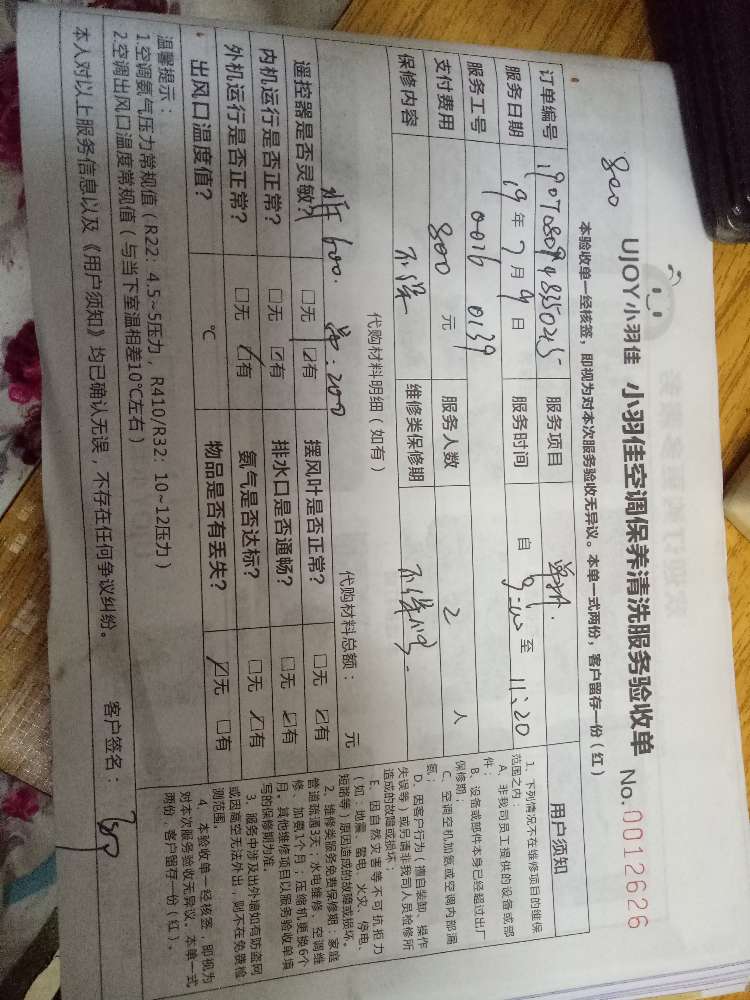 800
UJOY小羽佳 小羽佳空调保养清洗服务验收单 No.0012626
本验收单一经核签，即视为对本次服务验收无异议。本单一式两份，客户留存一份（红）
订单编号 服务项目
服务日期 19年7月9日 服务时间 自 9:00 至 11:20
服务工号 0016 0139
支付费用 800 元 服务人数 2 人
保修内容 不保 维修类保修期
代购材料明细（如有） 代购材料总额： 元
600. 200
遥控器是否灵敏？ □无 ☑有 摆风叶是否正常？ □无 ☑有
内机运行是否正常？ □无 ☑有 排水口是否通畅？ □无 ☑有
外机运行是否正常？ □无 ☑有 氨气是否达标？ □无 ☑有
出风口温度值？ ℃ 物品是否有丢失？ ☑无 □有
温馨提示：
1.空调氨气压力常规值（R22：4.5~5压力，R410/R32：10~12压力）
2.空调出风口温度常规值（与当下室温相差10℃左右）
本人对以上服务信息以及《用户须知》均已确认无误，不存在任何争议纠纷。 客户签名：
用户须知
1、下列情况不在维修项目的维保
范围之内：
A、非我司员工提供的设备或部
件；
B、设备或部件本身已经超过出厂
保修期；
C、空调空机加氨或空调内部漏
氨；
D、因客户行为（擅自装卸、操作
失误等）或另请非我司人员检修所
造成的故障或损坏；
E、因自然灾害等不可抗拒力
（如：地震、雷电、火灾、停电、
短路等）原因造成的故障或损坏。
2、维修类服务免费保修期：家庭
管道疏通3天；水电维修、空调维
修、加氨1个月；压缩机更换6个
月。其他维修项目以服务验收单填
写的保修期为准。
3、服务中涉及出外墙如有防盗网
或因高空无法外出，则不在免费检
测范围。
4、本验收单一经核签，即视为
对本次服务验收无异议。本单一式
两份，客户留存一份（红）。